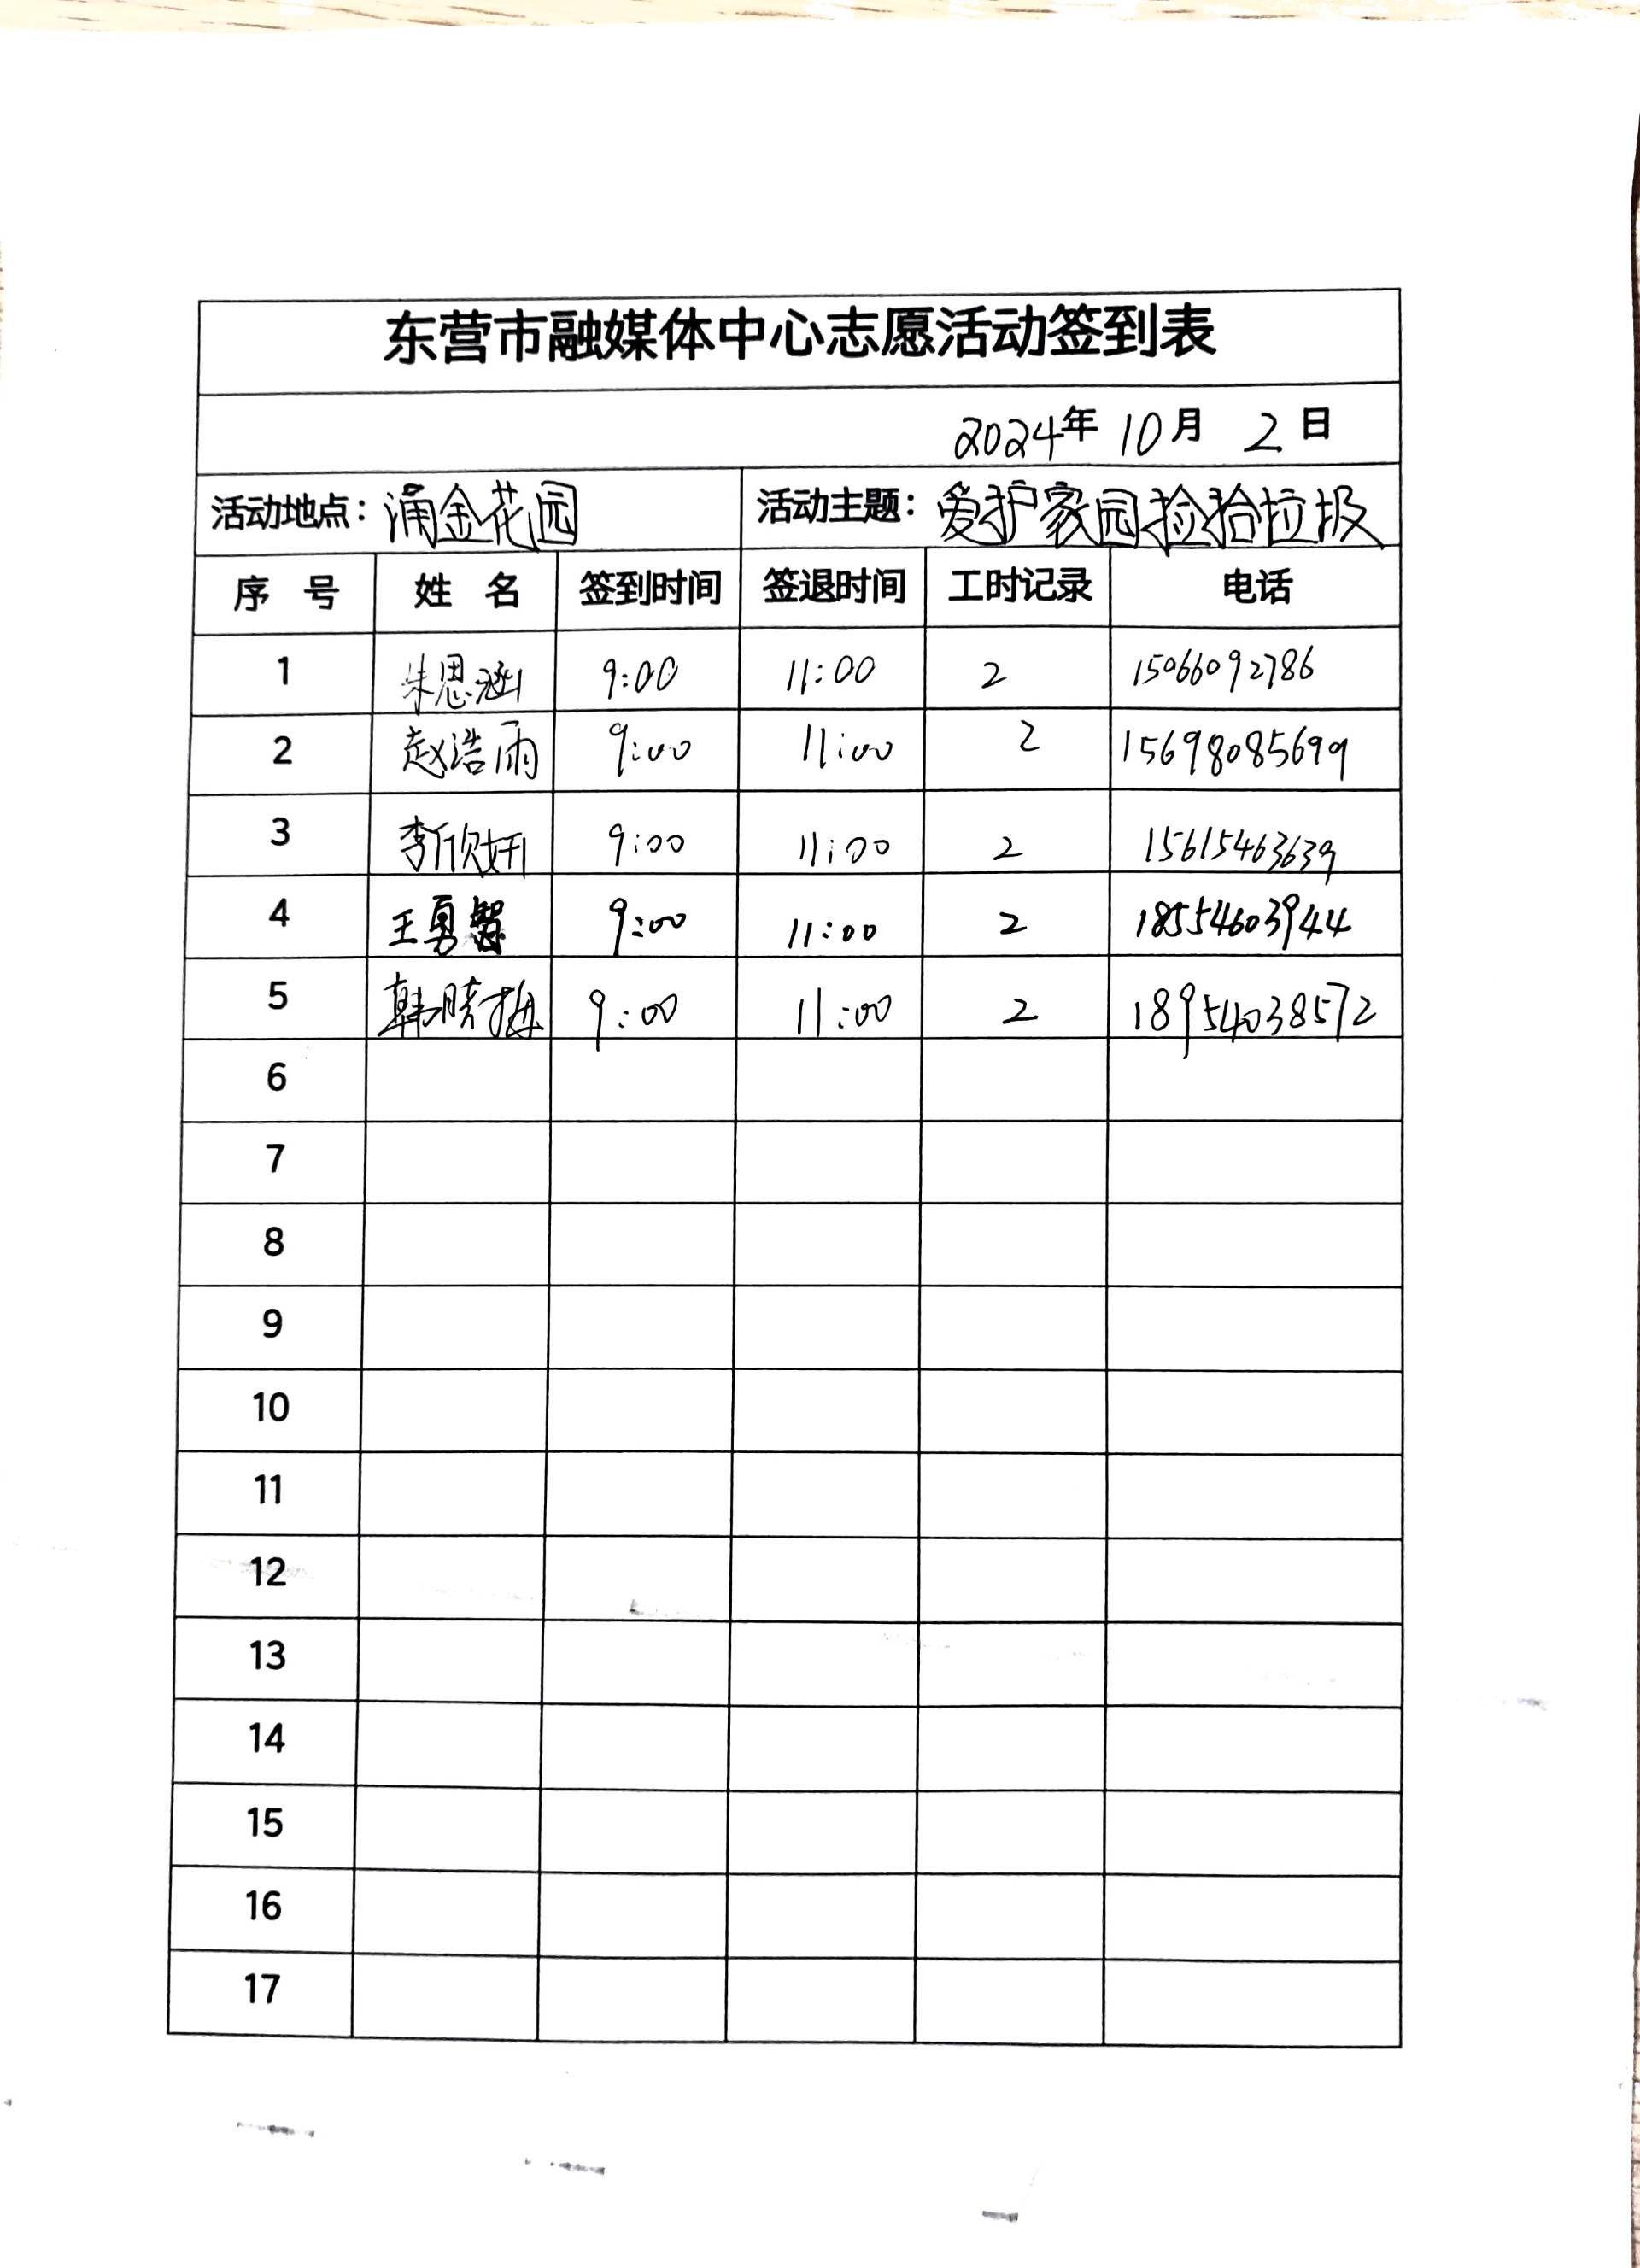 东营市融媒体中心志愿活动签到表
2024年 10月 2日
活动地点：涌金花园 活动主题：爱护家园捡拾垃圾
序 号 姓 名 签到时间 签退时间 工时记录 电话
1 朱思涵 9:00 11:00 2 15066092786
2 赵浩雨 9:00 11:00 2 15698085699
3 李欣妍 9:00 11:00 2 15615463639
4 王勇 9:00 11:00 2 18554603944
5 韩晓梅 9:00 11:00 2 18954038572
6
7
8
9
10
11
12
13
14
15
16
17